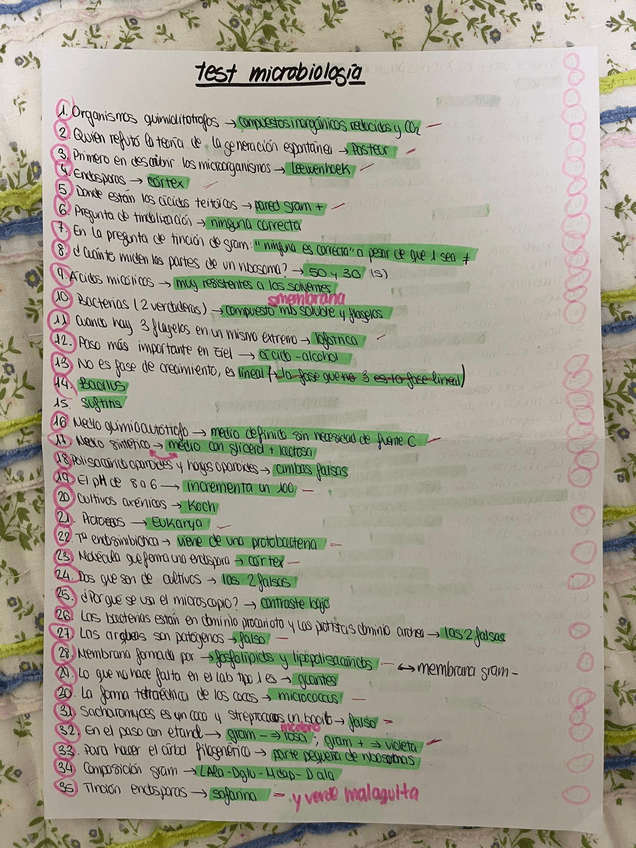 test microbiología
1. Organismos quimiolitotrofos → compuestos inorgánicos reducidos y CO2
2. Quién refutó la teoría de la generación espontánea → Pasteur
3. Primero en describir los microorganismos → Leewenhoek
4. Endosporas → córtex
5. Donde están los ácidos teitoicos → pared gram +
6. Pregunta de tindalización → ninguna correcta
7. En la pregunta de tinción de gram: "ninguna es correcta" a pesar de que 1 sea ≠
8. ¿Cuánto miden las partes de un ribosoma? → 50 y 30 (S)
9. Ácidos micólicos → muy resistentes a los solventes
membrana
10. Bacterias (2 verdaderas) → compuesto más soluble y flagelos
11. Cuando hay 3 flagelos en un mismo extremo → lofotrica
12. Paso más importante en Ziel → ácido-alcohol
13. No es fase de crecimiento, es lineal (→ la fase que no es la fase lineal)
14. Bacillus
15.
16. Medio quimioautótrofo → medio definido sin necesidad de fuente C
17. Medio sintético → medio con glicerol + lactosa
18. Polisacárido oparoides y hongos oparoides → ambas falsas
19. El pH de 8 a 6 → incrementa un 100
20. Cultivos axénicos → Koch
21. → Eukarya
22. Tª endosimbiótica → viene de una protobacteria
23. Molécula que forma una endospora → córtex
24. Dos que son de cultivos → las 2 falsas
25. ¿Por qué se usa el microscopio? → contraste bajo
26. Las bacterias están en dominio procariota y los protistas dominio archea → las 2 falsas
27. Las arqueas son patógenos → falso
28. Membrana formada por → fosfolípidos y lipopolisacáridos ↔ membrana gram -
29. Lo que no hace falta en el lab tipo 1 es → guantes
30. La forma tetraédrica de los cocos → micrococcus
31. Sacharomyces es un coco y streptococcus un bacilo → falso
incoloro
32. En el paso con etanol → gram - → rosa ; gram + → violeta
33. Para hacer el árbol filogenético → parte pequeña de ribosomas
34. Composición gram → LAla-Dglu-Mdap-Dala
35. Tinción endosporas → safranina y verde malaquita